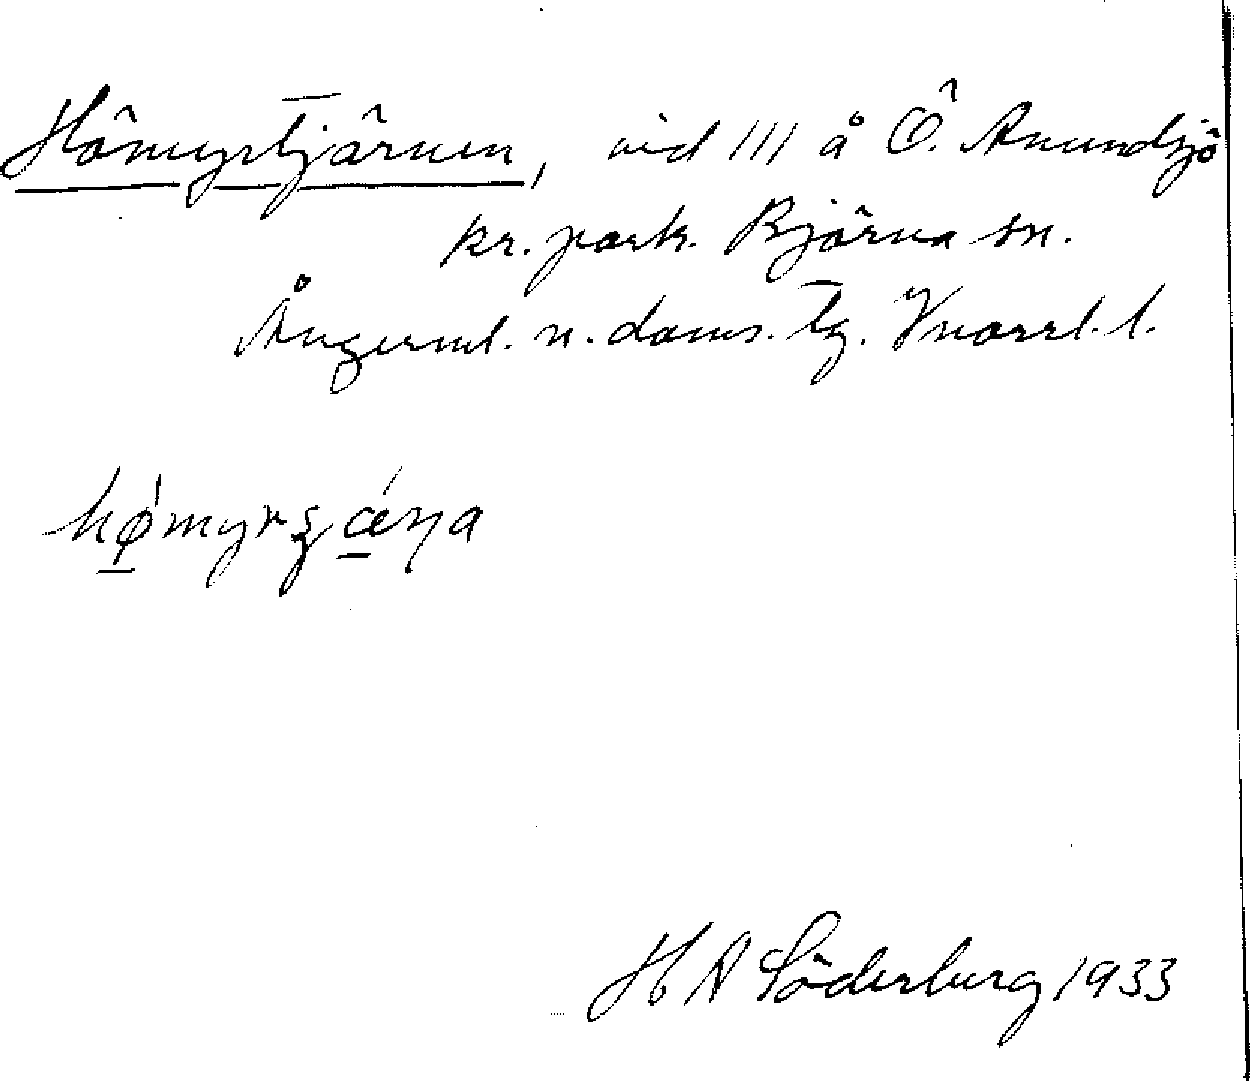 Hömyrtjärnen, vid 111 å Ö. Anundsjö
kr. park. Björna sn.
Ångerml. n. doms. Tg. Vnorrl. l.
hǿmyrʂǽɳa
H A Söderberg 1933